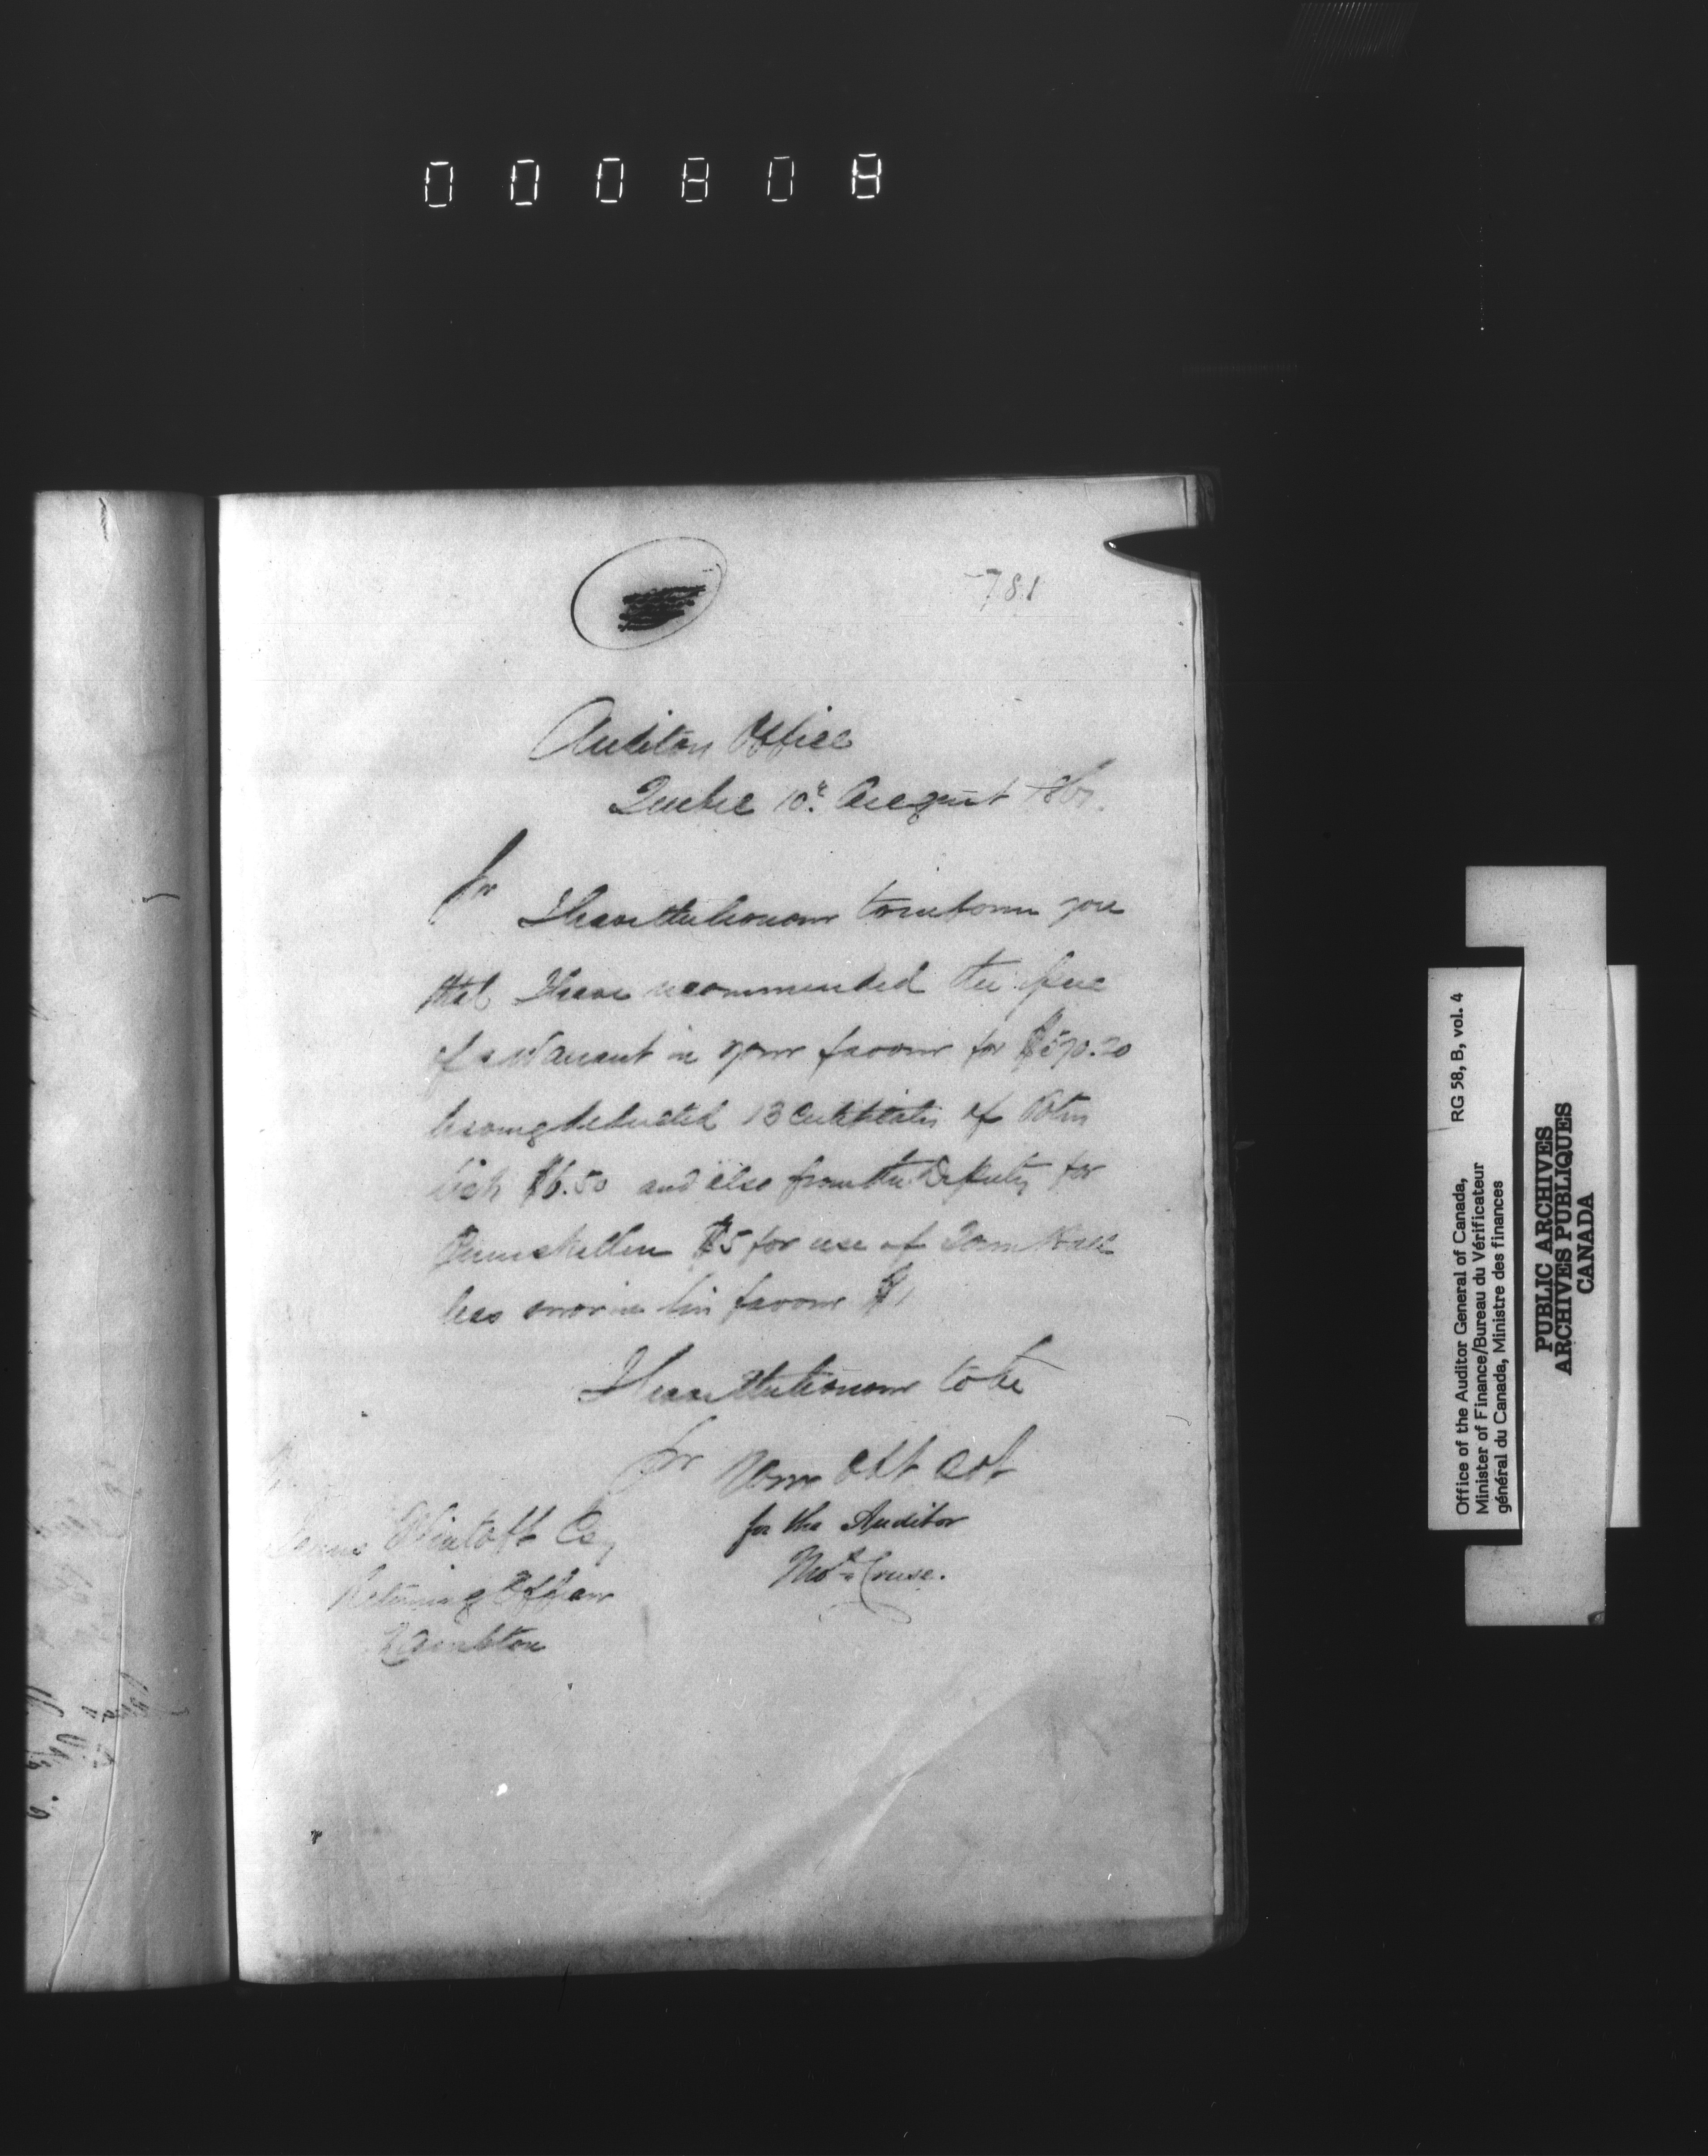 000808
781
Auditors Office
Quebec 10th August 186
Sir
I have the honour to inform you
that I have recommended the issue
of a Warrant in your favour for $570.20
having deducted 13 certificates of Oaths
$6.50 and also from the Deputy for
Enniskillen $5 for use of Town Hall
less error in his favour $1
I have the honour to be
Sir Your Obt Svt
for the Auditor
Thos Cruse.
Esq
Returning Officer
Lambton
Office of the Auditor General of Canada, RG 58, B, vol. 4
Minister of Finance/Bureau du Vérificateur
général du Canada, Ministre des finances
PUBLIC ARCHIVES
ARCHIVES PUBLIQUES
CANADA